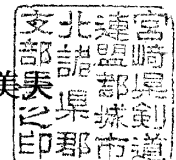 宮崎県剣道
連盟都城市
北諸県郡
支部之印
美